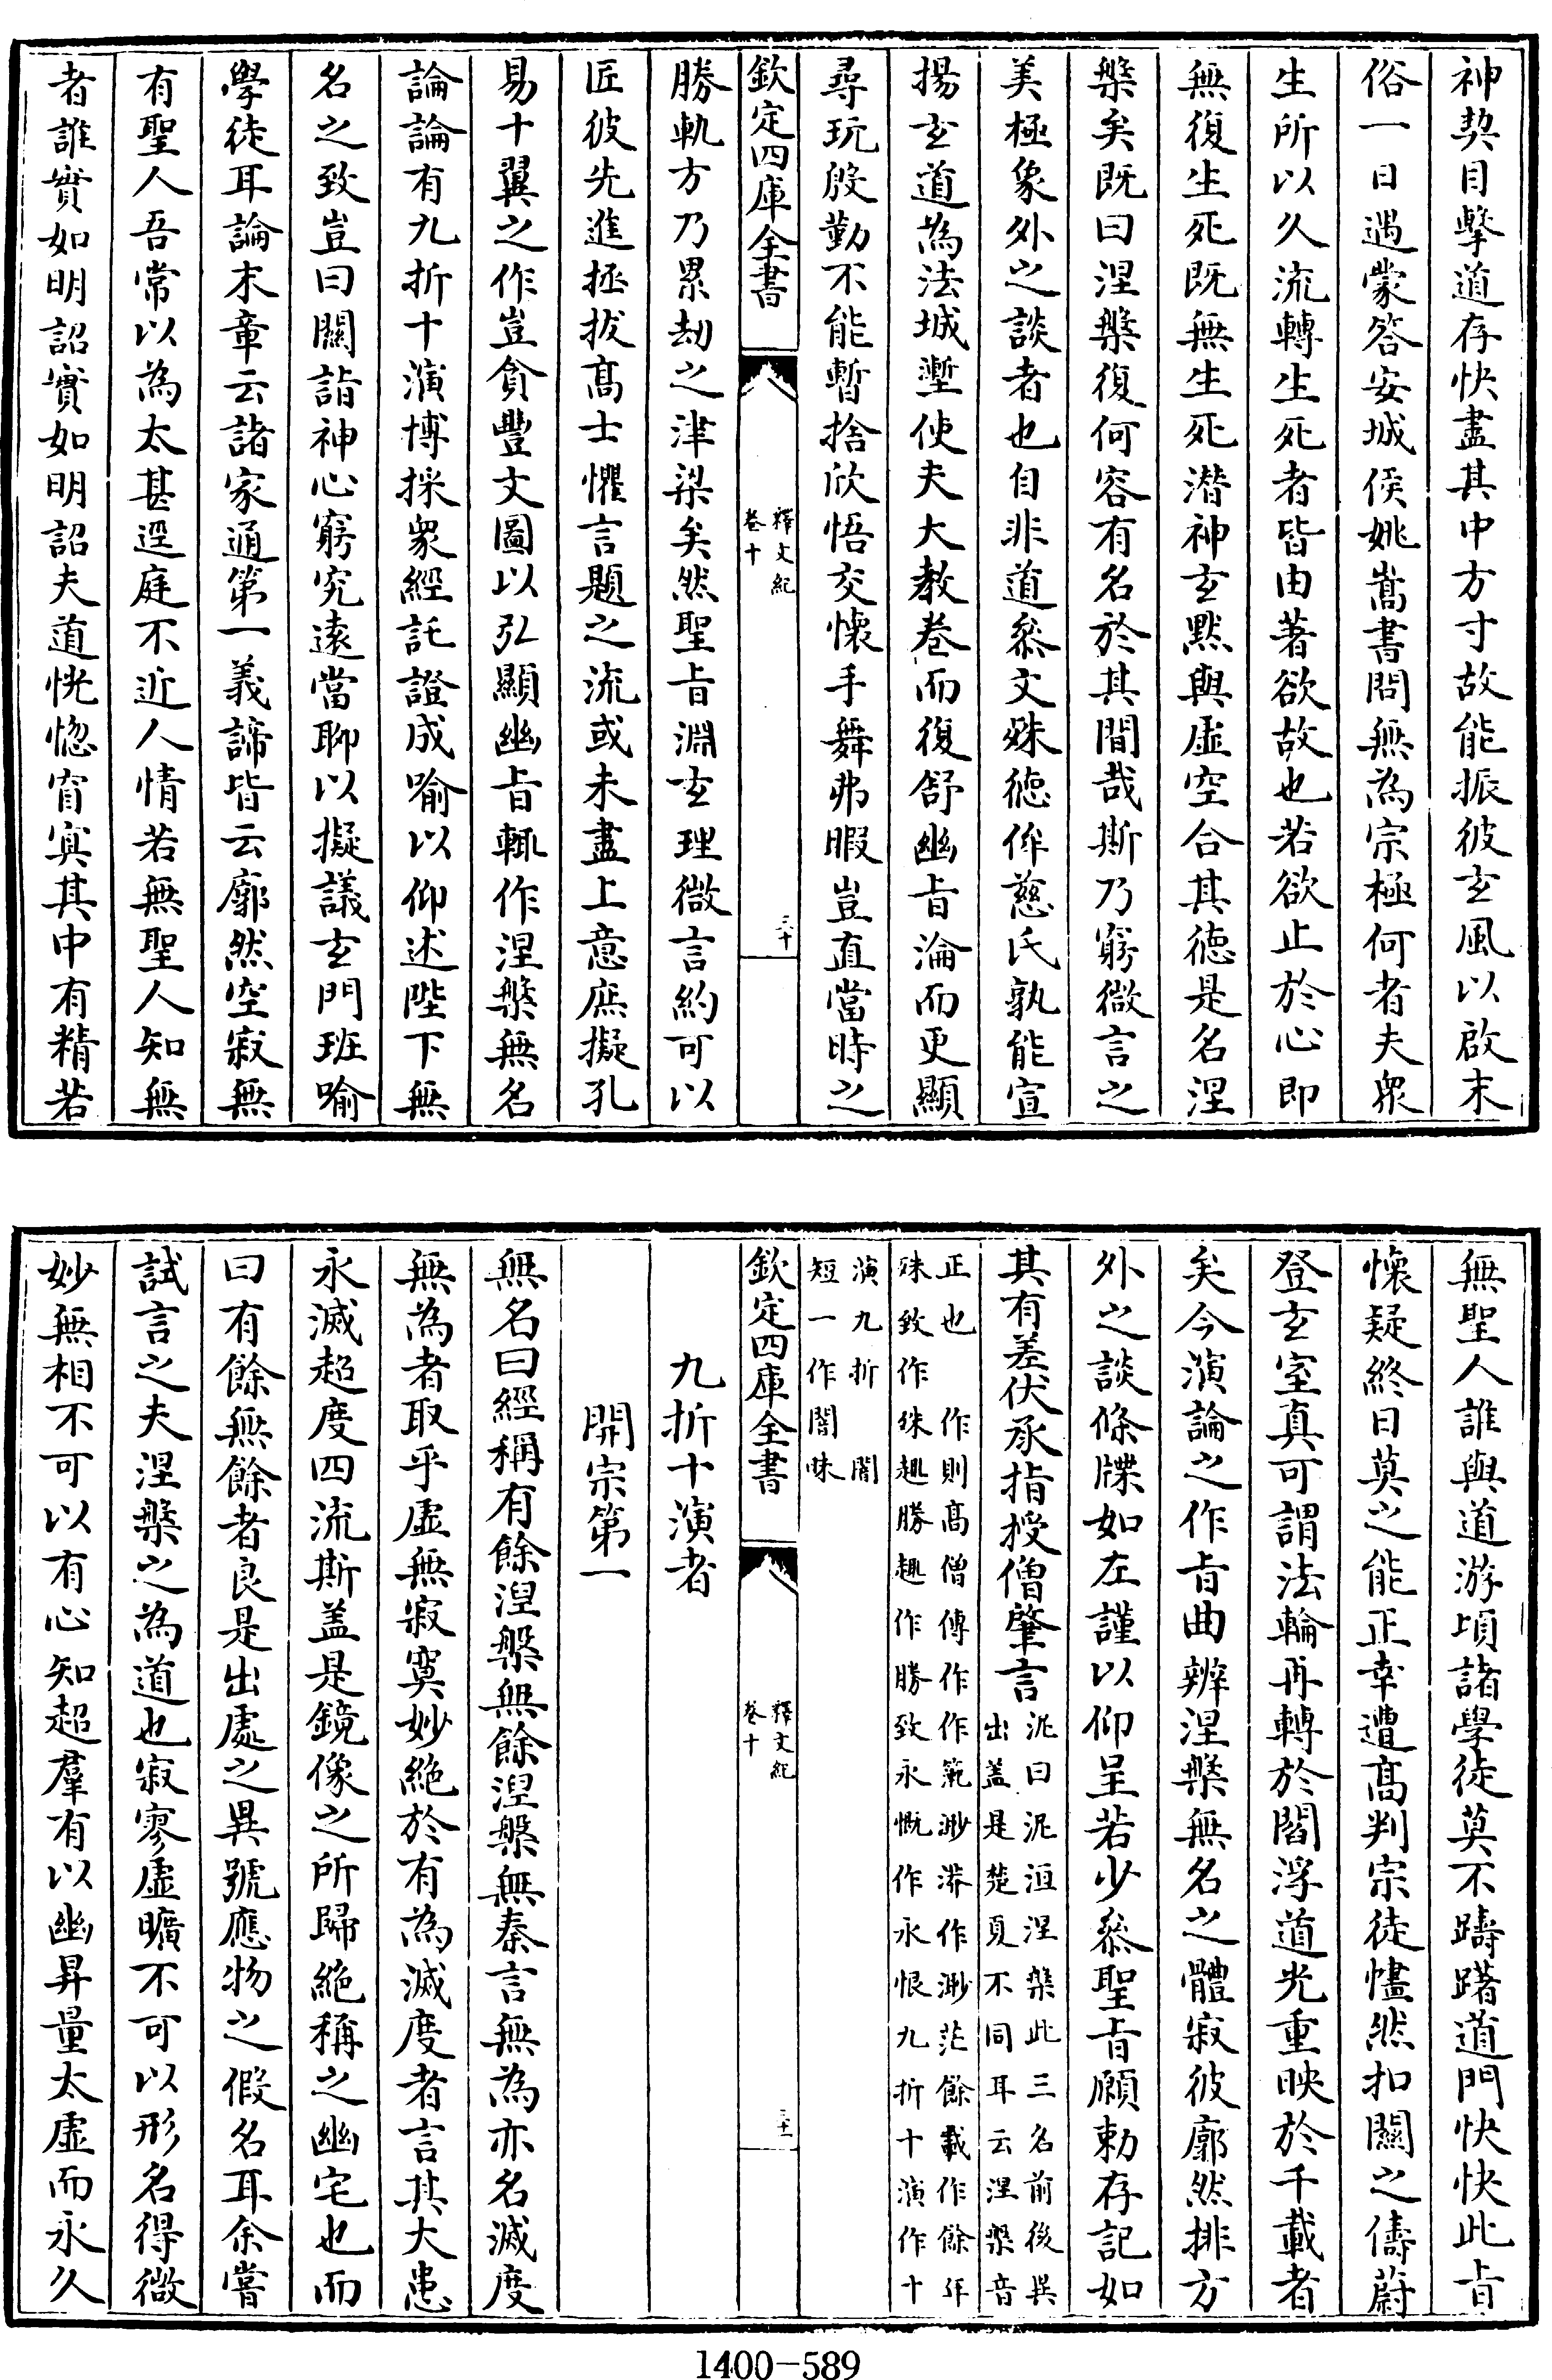 神契目擊道存快盡其中方寸故能振彼玄風以啟末
俗一日遇蒙答安城侯姚嵩書問無為宗極何者夫衆
生所以久流轉生死者皆由著欲故也若欲止於心即
無復生死既無生死潛神玄默與虛空合其徳是名涅
槃矣既曰涅槃復何容有名於其間哉斯乃窮微言之
美極象外之談者也自非道叅文殊徳侔慈氏孰能宣
揚玄道為法城壍使夫大教卷而復舒幽㫖淪而更顯
尋玩殷勤不能暫捨欣悟交懷手舞弗暇豈直當時之
欽定四庫全書
釋文紀
卷十
三十
勝軌方乃累劫之津梁矣然聖㫖淵玄理微言約可以
匠彼先進拯拔髙士懼言題之流或未盡上意庶擬孔
易十翼之作豈貪豐文圖以弘顯幽㫖輒作涅槃無名
論論有九折十演博採衆經託證成喻以仰述陛下無
名之致豈曰關詣神心窮究遠當聊以擬議玄門班喻
學徒耳論末章云諸家通第一義諦皆云廓然空寂無
有聖人吾常以為太甚逕庭不近人情若無聖人知無
者誰實如明詔實如明詔夫道恍惚窅冥其中有精若
無聖人誰與道游頃諸學徒莫不躊躇道門怏怏此㫖
懷疑終日莫之能正幸遭髙判宗徒㦎然扣關之儔蔚
登玄室真可謂法輪再轉於閻浮道光重映於千載者
矣今演論之作㫖曲辨涅槃無名之體寂彼廓然排方
外之談條牒如左謹以仰呈若少叅聖㫖願勅存記如
其有差伏承指授僧肇言
泥曰泥洹涅槃此三名前後異
出盖是楚夏不同耳云涅槃音
正也　作則髙僧傳作作範渺漭作渺茫餘載作餘年
殊致作殊趣勝趣作勝致永慨作永恨九折十演作十
演九折　闇
短一作闇昧
欽定四庫全書
釋文紀
卷十
三十一
九折十演者
開宗第一
無名曰經稱有餘涅槃無餘涅槃無秦言無為亦名滅度
無為者取乎虛無寂寞妙絶於有為滅度者言其大患
永滅超度四流斯盖是鏡像之所歸絶稱之幽宅也而
曰有餘無餘者良是出處之異號應物之假名耳余嘗
試言之夫涅槃之為道也寂寥虛曠不可以形名得微
妙無相不可以有心知超羣有以幽昇量太虛而永久
1400-589